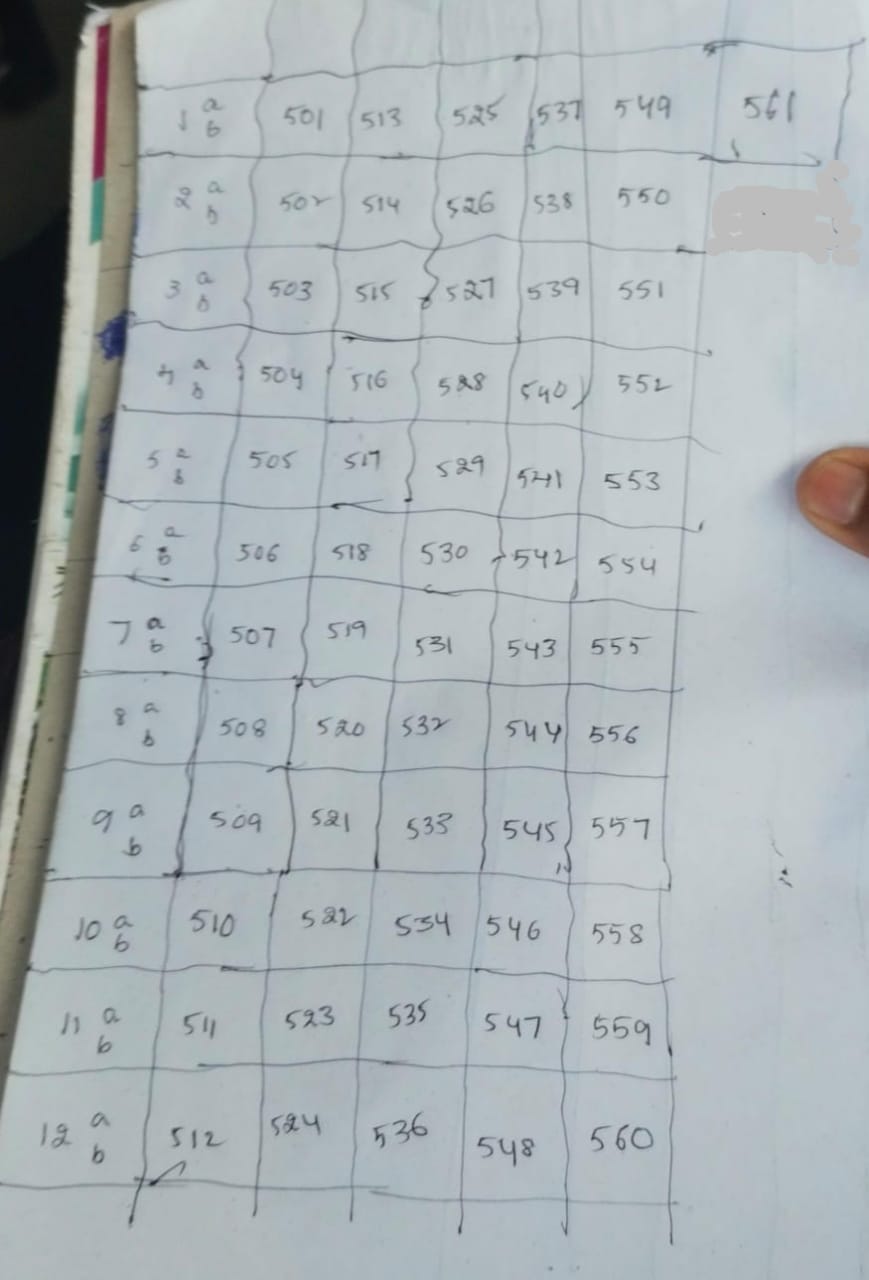 1 a b 501 513 525 537 549 561
2 a b 502 514 526 538 550
3 a b 503 515 527 539 551
4 a b 504 516 528 540 552
5 a b 505 517 529 541 553
6 a b 506 518 530 542 554
7 a b 507 519 531 543 555
8 a b 508 520 532 544 556
9 a b 509 521 533 545 557
10 a b 510 522 534 546 558
11 a b 511 523 535 547 559
12 a b 512 524 536 548 560